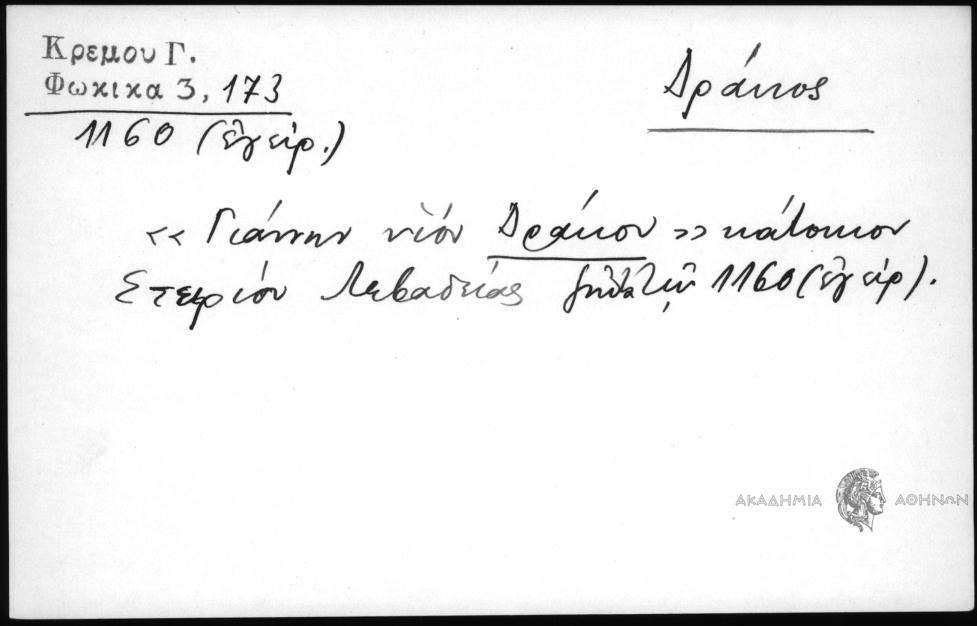 Κρεμου Γ.
Φωκικα 3, 173
1160 (ἐγείρ.)
Δράκος
<< Γιάννην υἱόν Δράκου >> κάτοικον
Στειρίου Λεβαδείας 1160 (ἐγείρ).
ΑΚΑΔΗΜΙΑ ΑΘΗΝΩΝ